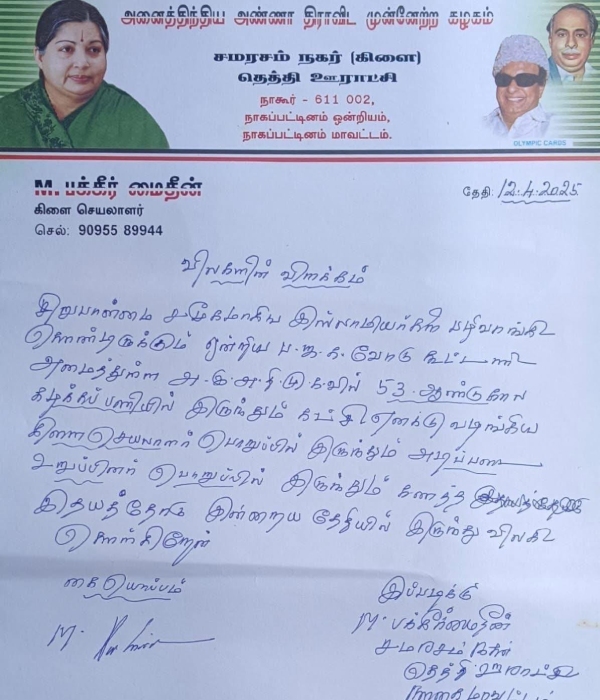 அனைத்திந்திய அண்ணா திராவிட முன்னேற்ற கழகம்
சமரசம் நகர் (கிளை)
தெத்தி ஊராட்சி
நாகூர் - 611 002,
நாகப்பட்டினம் ஒன்றியம்,
நாகப்பட்டினம் மாவட்டம்.
OLYMPIC CARDS
M. பக்கீர் மைதீன்
கிளை செயலாளர்
செல்: 90955 89944
தேதி: 12.4.2025
விலகளின் விளக்கம்
சிறுபான்மை சமூகமாகிய இஸ்லாமியர்களை பழிவாங்கி
கொண்டிருக்கும் ஒன்றிய ப.ஜ.க.வோடு கூட்டணி
அமைத்துள்ள அ.இ.அ.தி.மு.கவில் 53 ஆண்டுகால
கழகப்பணியில் இருந்தும் கட்சி எனக்கு வழங்கிய
கிளை செயலாளர் பொறுப்பில் இருந்தும் அடிப்படை
உறுப்பினர் பொறுப்பில் இருந்தும் கனத்த
இதயத்தோடு இன்றைய தேதியில் இருந்து விலகி
கொள்கிறேன்
கையொப்பம்
இப்படிக்கு
M. பக்கீர்மைதீன்
சமரசம் நகர்
தெத்தி ஊராட்சி
நாகை மாவட்டம்